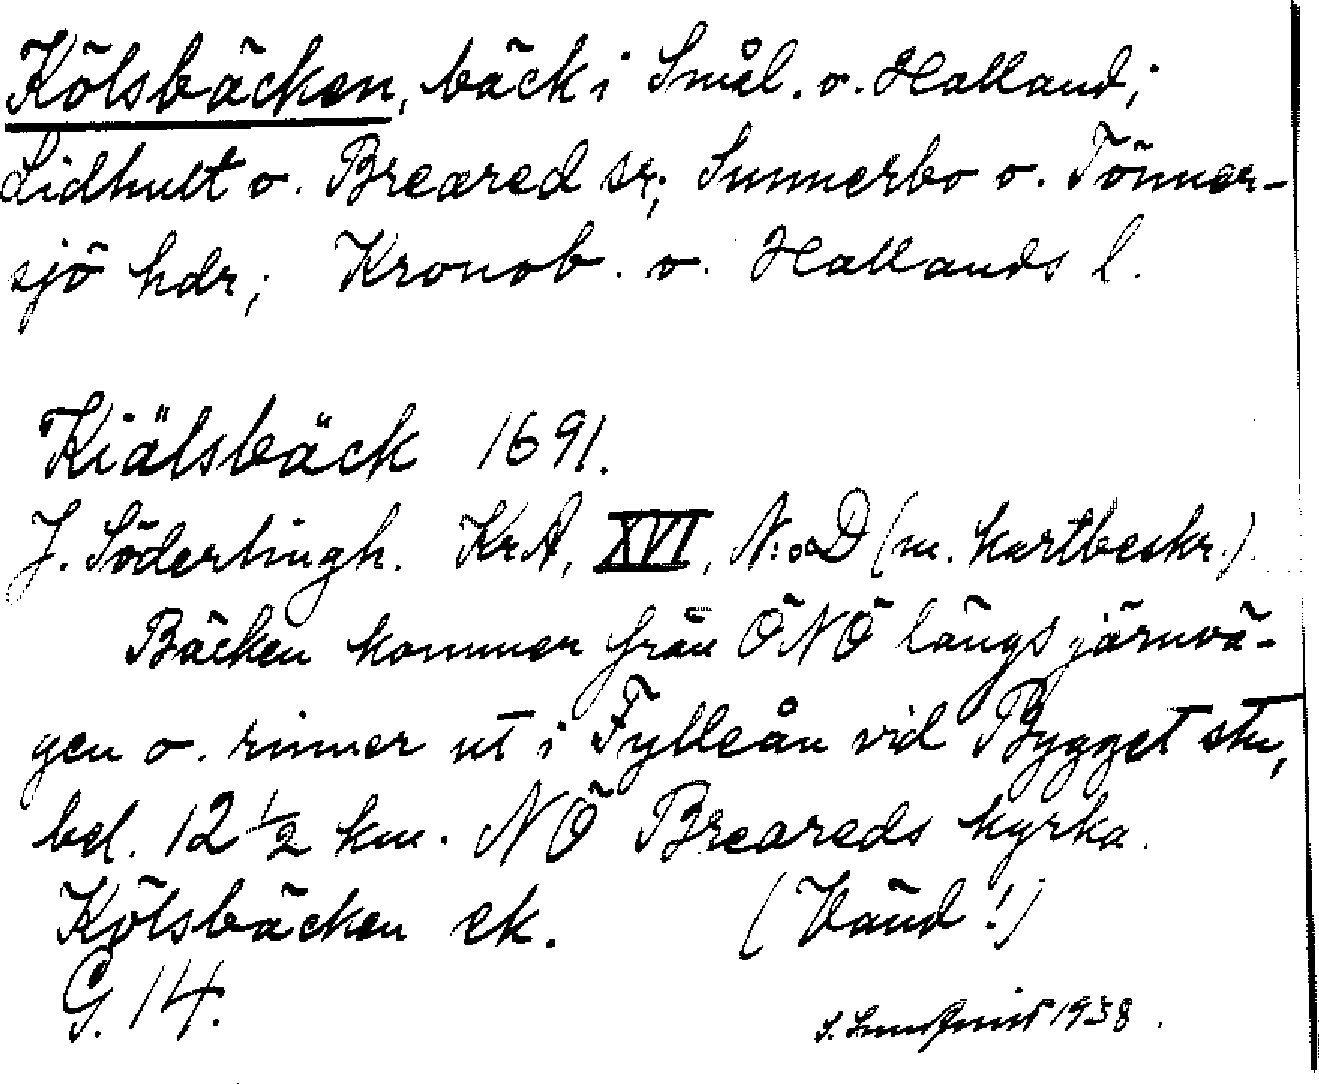 Kölsbäcken, bäck i Smål. o. Halland;
Lidhult o. Breared sr; Sunnerbo o. Tönner-
sjö hdr; Kronob. o. Hallands l.
Kiälsbäck 1691.
J. Söderlingh. KrA, XVI, N:o D (m. kartbeskr.)
Bäcken kommer från ÖNÖ längs järnvä-
gen o. rinner ut i Fylleån vid Bygget stn,
bel. 12 1/2 km. NÖ Breareds kyrka.
Kölsbäcken ek. (Vänd!)
G. 14.
1938.